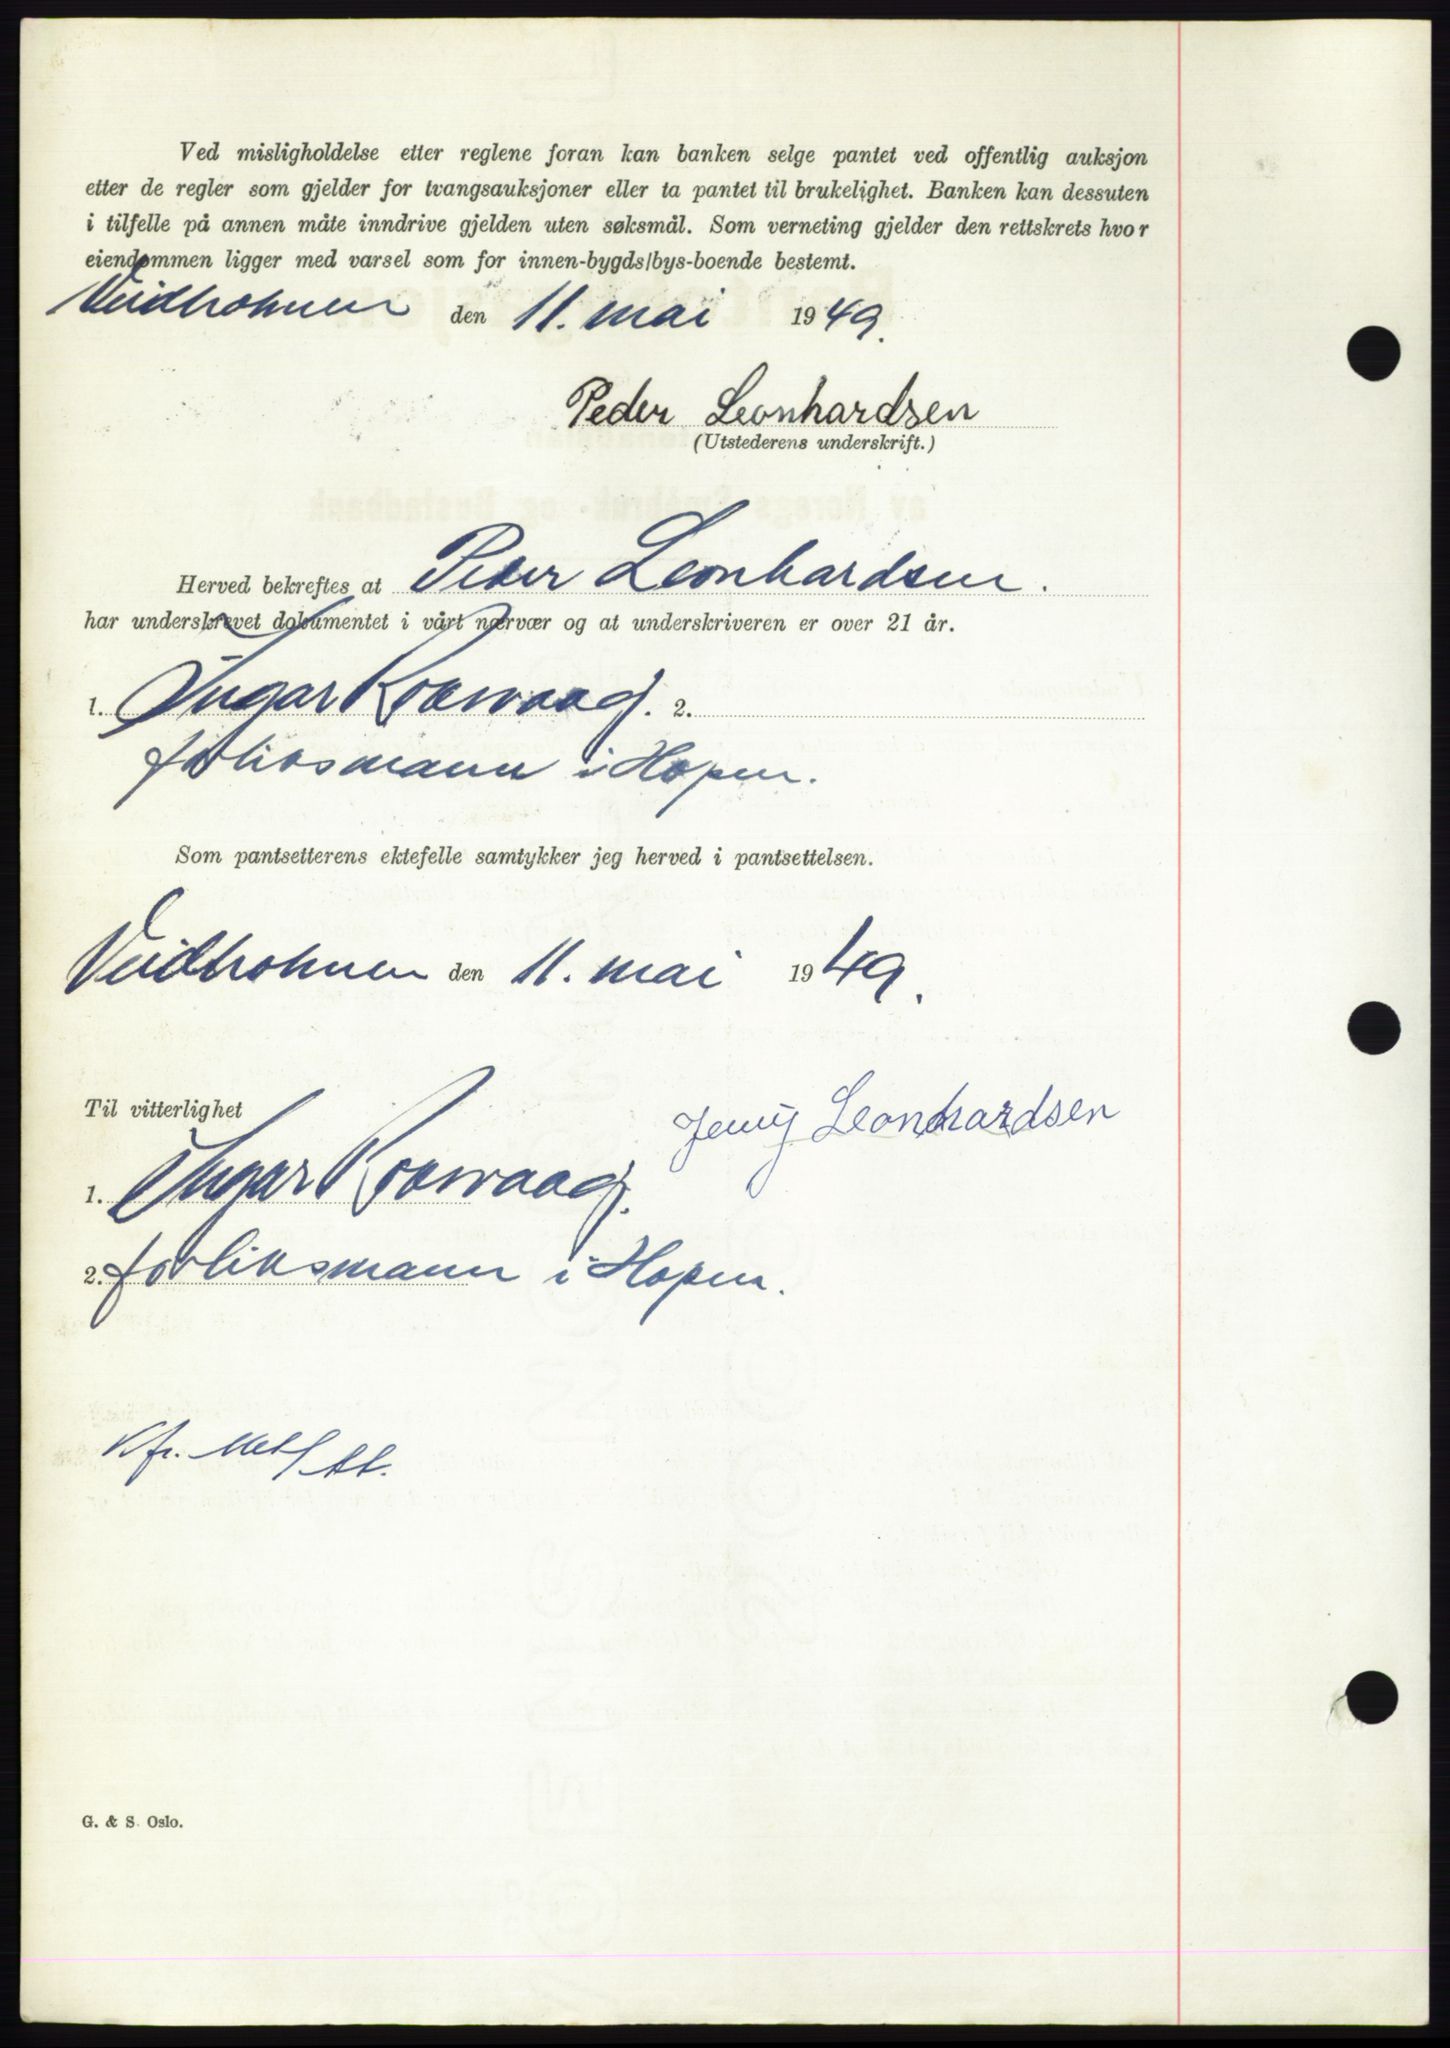 Ved misligholdelse etter reglene foran kan banken selge pantet ved offentlig auksjon
etter de regler som gjelder for tvangsauksjoner eller ta pantet til brukelighet. Banken kan dessuten
i tilfelle på annen måte inndrive gjelden uten søksmål. Som verneting gjelder den rettskrets hvor
eiendommen ligger med varsel som for innen-bygds/bys-boende bestemt.
Veidholmen den 11. mai 1949.
Peder Leonhardsen
(Utstederens underskrift.)
Herved bekreftes at Peder Leonhardsen.
har underskrevet dokumentet i vårt nærvær og at underskriveren er over 21 år.
1. Ingar Rokvaag. 2.
forliksmann i Hopen.
Som pantsetterens ektefelle samtykker jeg herved i pantsettelsen.
Veidholmen den 11. mai 1949.
Til vitterlighet
Jenny Leonhardsen
1. Ingar Rokvaag.
2. forliksmann i Hopen.
G. & S. Oslo.